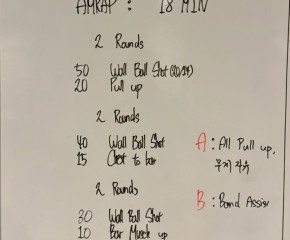 AMRAP : 18 MIN
2 Rounds
50 Wall Ball Shot (20/14)
20 Pull up
2 Rounds
40 Wall Ball Shot
15 Chest to bar
2 Rounds
30 Wall Ball Shot
10 Bar Muscle up
A : All Pull up.
무게 자유
B : Band Assis